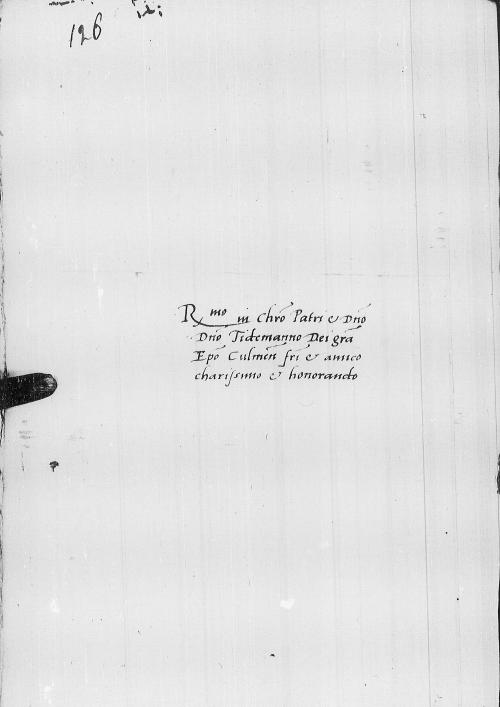 126
R^mo in Chr̄o Patri & Dn̄o
Dn̄o Tidemanno Dei grā
Ep̄o Culmeñ fr̄i & amico
charissimo & honorando